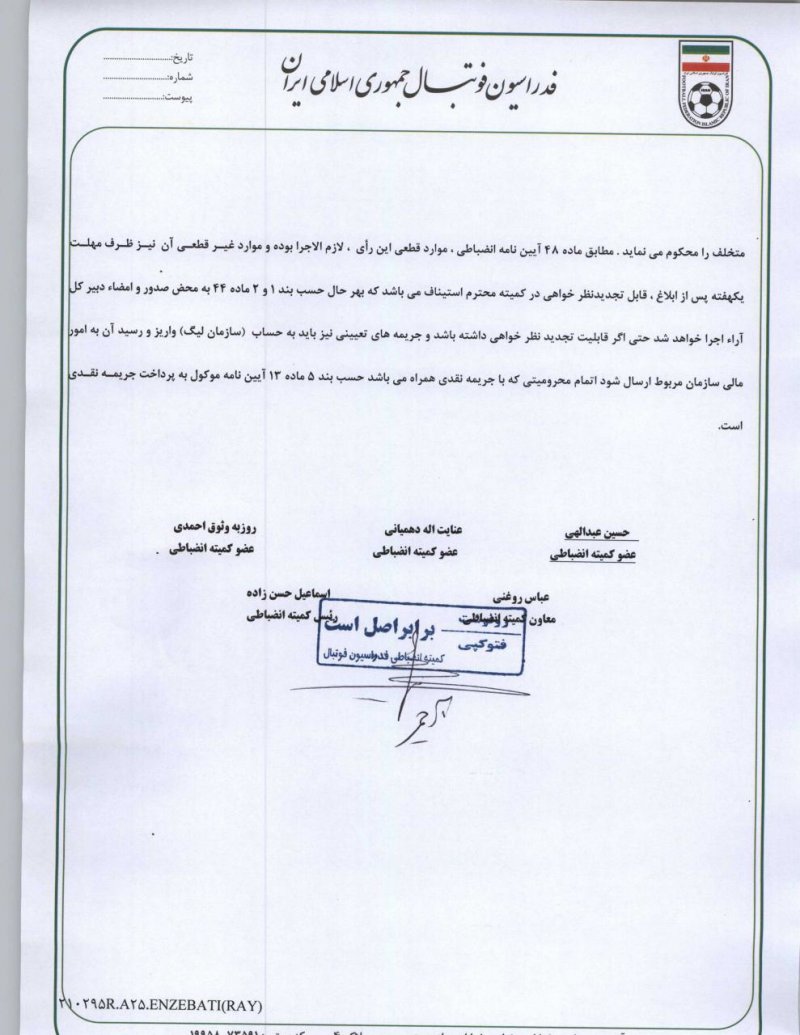 فدراسیون فوتبال جمهوری اسلامی ایران
تاریخ:
شماره:
پیوست:
متخلف را محکوم می نماید . مطابق ماده ۴۸ آیین نامه انضباطی ، موارد قطعی این رأی ، لازم الاجرا بوده و موارد غیر قطعی آن نیز ظرف مهلت
یکهفته پس از ابلاغ ، قابل تجدیدنظر خواهی در کمیته محترم استیناف می باشد که بهر حال حسب بند ۱ و ۲ ماده ۴۴ به محض صدور و امضاء دبیر کل
آراء اجرا خواهد شد حتی اگر قابلیت تجدید نظر خواهی داشته باشد و جریمه های تعیینی نیز باید به حساب (سازمان لیگ) واریز و رسید آن به امور
مالی سازمان مربوط ارسال شود اتمام محرومیتی که با جریمه نقدی همراه می باشد حسب بند ۵ ماده ۱۳ آیین نامه موکول به پرداخت جریمه نقدی
است.
حسین عبدالهی عنایت اله دهمیانی روزبه وثوق احمدی
عضو کمیته انضباطی عضو کمیته انضباطی عضو کمیته انضباطی
عباس روغنی اسماعیل حسن زاده
معاون کمیته انضباطی رئیس کمیته انضباطی
فتوکپی برابر اصل است
کمیته انضباطی فدراسیون فوتبال
۲۱۰۲۹۵R.A۲۵.ENZEBATI(RAY)